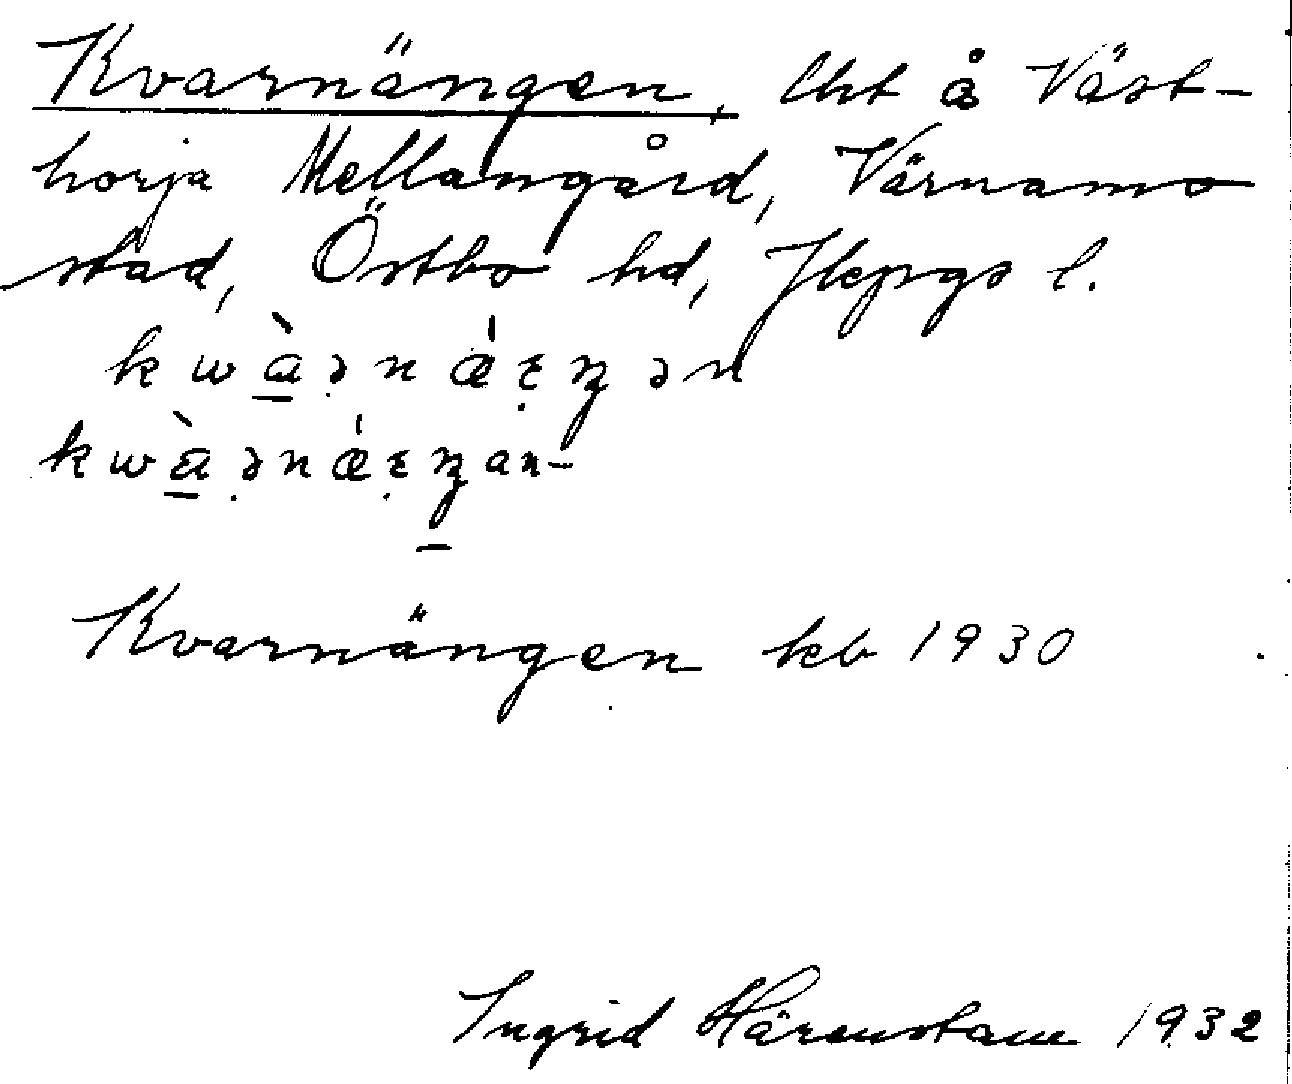 Kvarnängen, lht å Väst-
horja Mellangård, Värnamo
stad, Östbo hd, Jkpgs l.
kwàənǽɛŋən
kwàənǽɛŋan-
Kvarnängen kb 1930
Ingrid Härenstam 1932